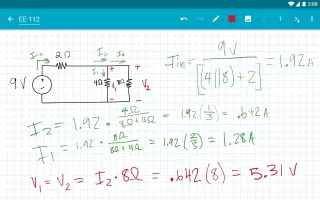 2:00
EE 112
1
Iin 2Ω I₁ I₂
9V 4Ω 8Ω V₂
Iin = 9V / [(4||8)+2] = 1.92A
I₂ = 1.92 · 4Ω / 8Ω+4Ω = 1.92(1/3) = .642A
I₁ = 1.92 · 8Ω / 8Ω+4Ω = 1.92(2/3) = 1.28A
V₁ = V₂ = I₂ · 8Ω = .642(8) = 5.31 V